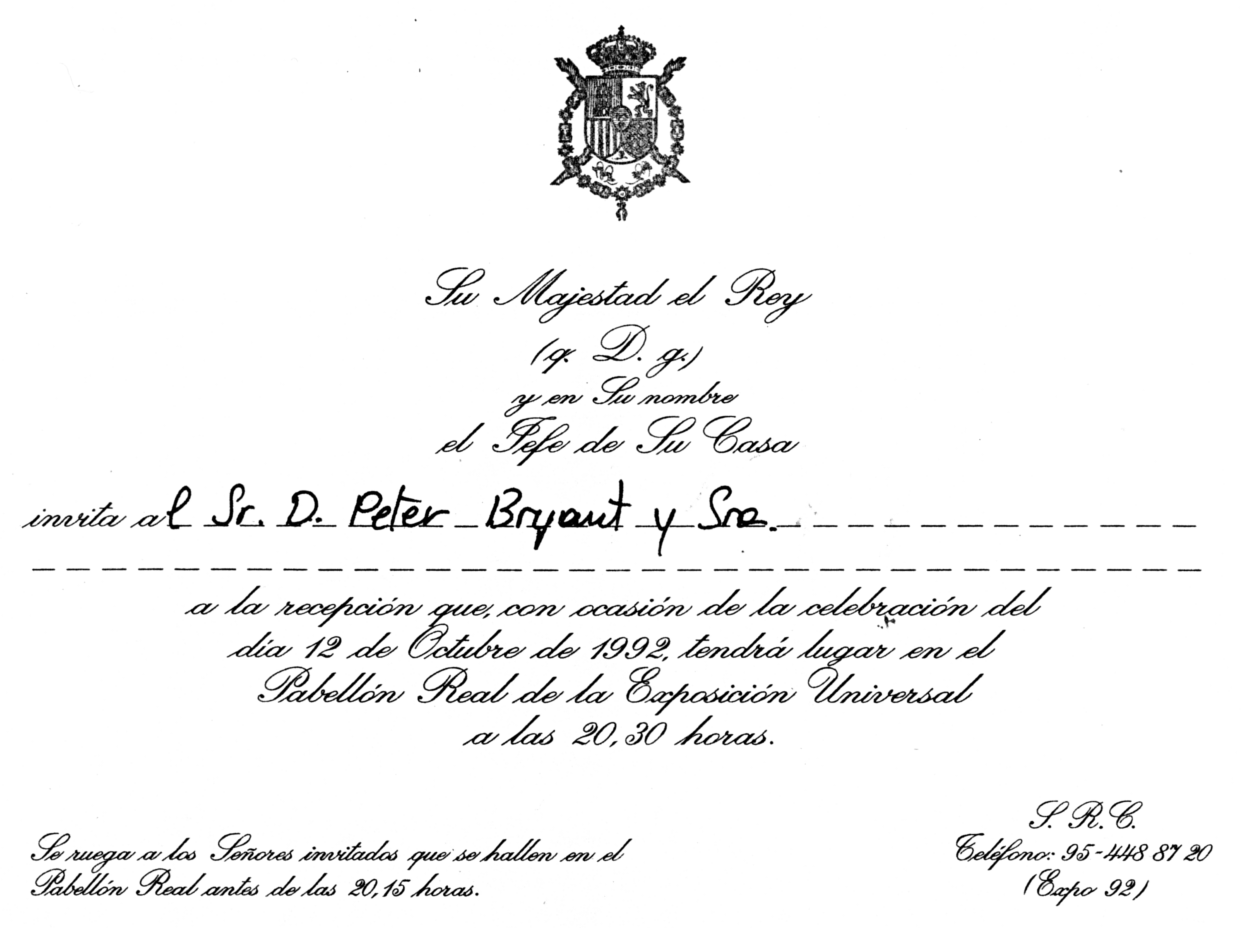 Su Majestad el Rey
(q. D. g.)
y en Su nombre
el Jefe de Su Casa
invita al Sr. D. Peter Bryant y Sra.
a la recepción que, con ocasión de la celebración del
día 12 de Octubre de 1992, tendrá lugar en el
Pabellón Real de la Exposición Universal
a las 20,30 horas.
Se ruega a los Señores invitados que se hallen en el
Pabellón Real antes de las 20,15 horas.
S. R. C.
Teléfono: 95-448 87 20
(Expo 92)